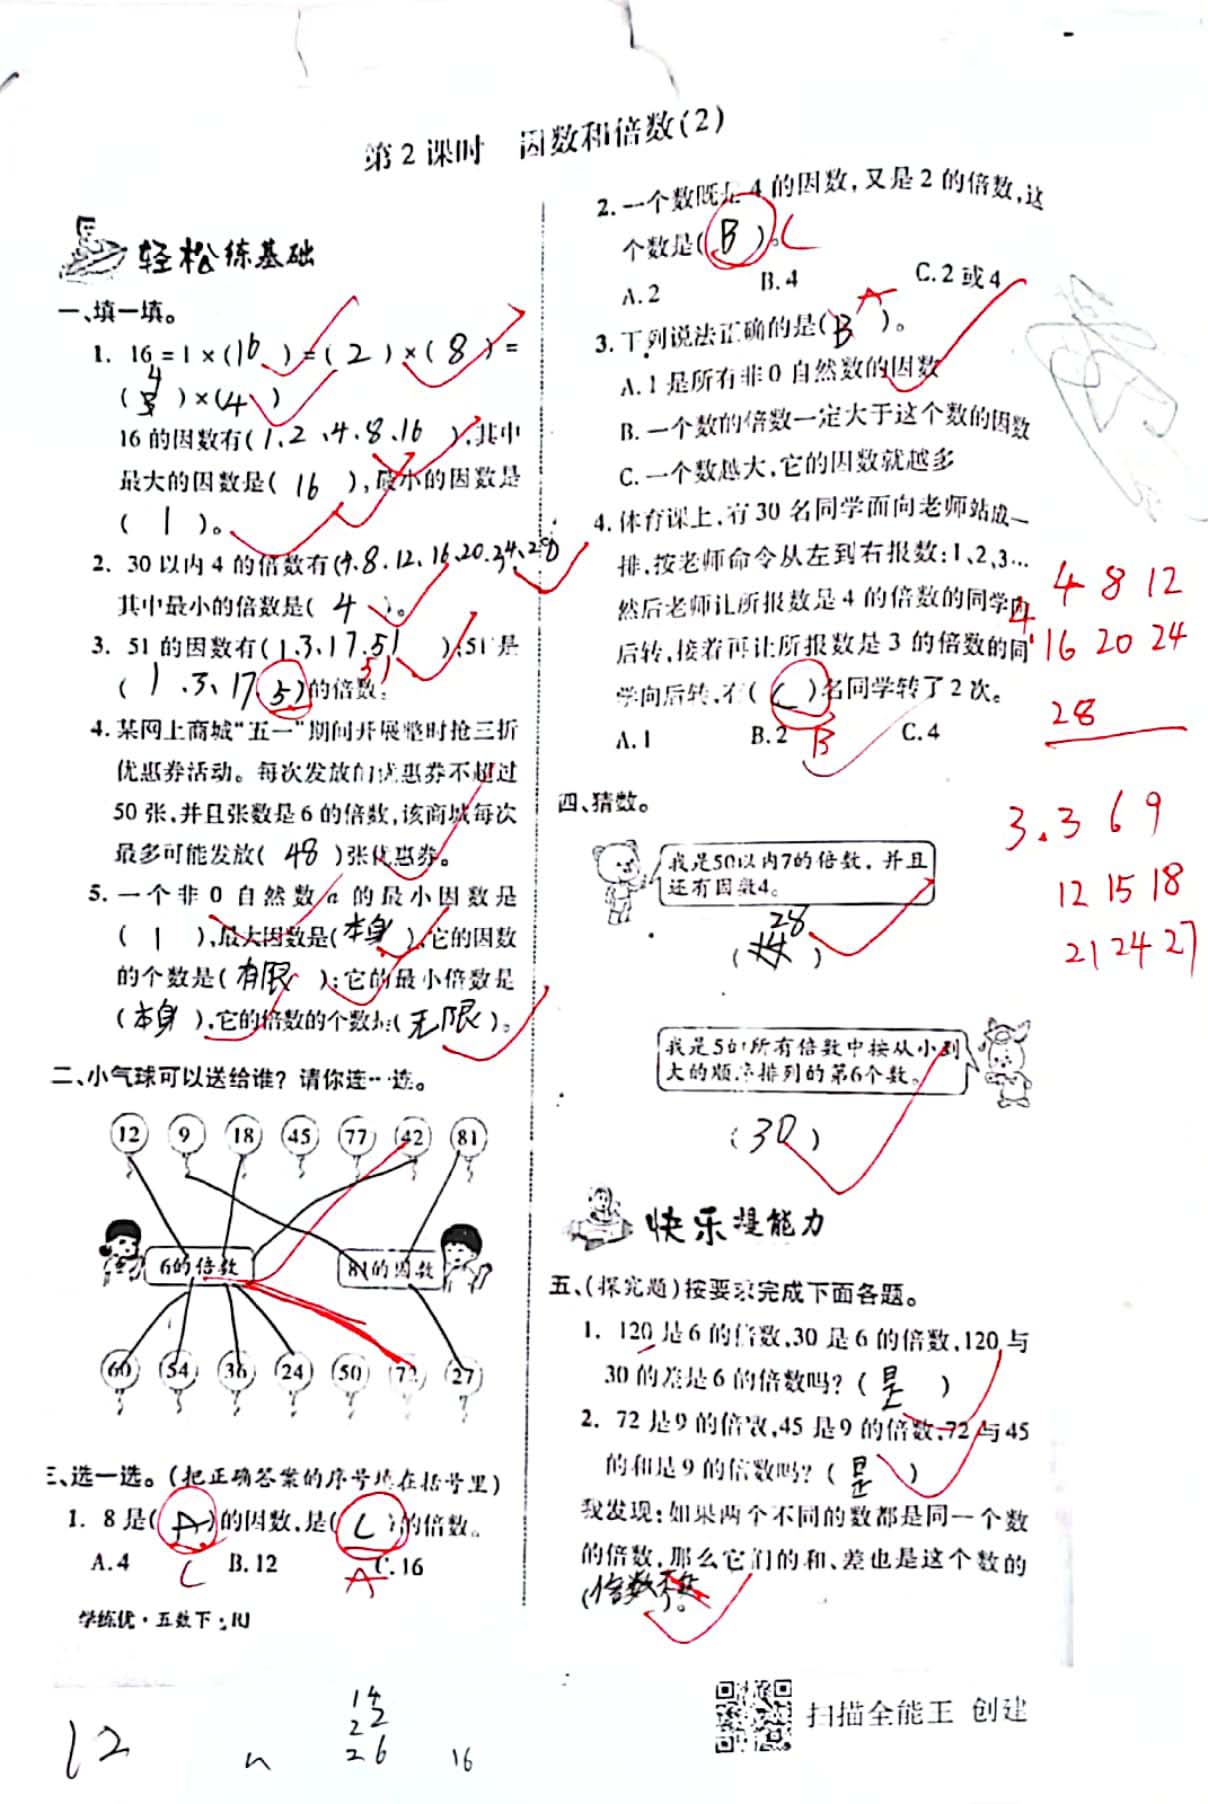 第2课时 因数和倍数(2)
轻松练基础
一、填一填。
1. 16=1×(16)=(2)×(8)=
(4)×(4)
16的因数有(1、2、4、8、16),其中
最大的因数是(16),最小的因数是
(1)。
2. 30以内4的倍数有(4、8、12、16、20、24、28
其中最小的倍数是(4)。
3. 51的因数有(1、3、17、51);51是
51
(1、3、17、51)的倍数。
4. 某网上商城“五一”期间开展整时抢三折
优惠券活动。每次发放的优惠券不超过
50张,并且张数是6的倍数,该商城每次
最多可能发放(48)张优惠券。
5. 一个非0自然数a的最小因数是
(1),最大因数是(本身),它的因数
的个数是(有限);它的最小倍数是
(本身),它的倍数的个数是(无限)。
二、小气球可以送给谁?请你连一连。
12 9 18 45 77 42 81
6的倍数 81的因数
60 54 36 24 50 72 27
三、选一选。(把正确答案的序号填在括号里)
1. 8是(A)的因数,是(C)的倍数。
A.4 B.12 C.16
C A
学练优·五数下·RJ
2. 一个数既是4的因数,又是2的倍数,这
个数是(B)。C
A.2 B.4 C.2或4
A
3. 下列说法正确的是(B)。
A.1是所有非0自然数的因数
B.一个数的倍数一定大于这个数的因数
C.一个数越大,它的因数就越多
4. 体育课上,有30名同学面向老师站成一
排,按老师命令从左到右报数:1、2、3…
然后老师让所报数是4的倍数的同学向
后转,接着再让所报数是3的倍数的同
学向后转,有(C)名同学转了2次。
A.1 B.2 C.4
B
4. 4 8 12
16 20 24
28
3. 3 6 9
12 15 18
21 24 27
四、猜数。
我是50以内7的倍数,并且
还有因数4。
(28)
我是5的所有倍数中按从小到
大的顺序排列的第6个数。
(30)
快乐提能力
五、(探究题)按要求完成下面各题。
1. 120是6的倍数,30是6的倍数,120与
30的差是6的倍数吗?(是)
2. 72是9的倍数,45是9的倍数,72与45
的和是9的倍数吗?(是)
我发现:如果两个不同的数都是同一个数
的倍数,那么它们的和、差也是这个数的
(倍数)。
扫描全能王 创建
12
14
22
26
16